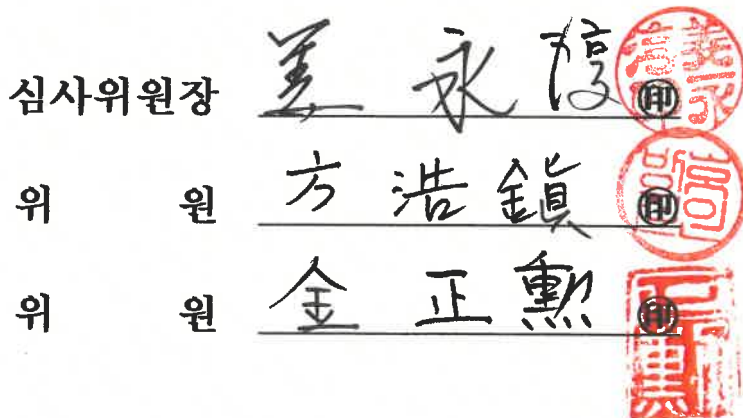 심사위원장 姜永淳 印
위 원 方浩鎭 印
위 원 金正勲 印